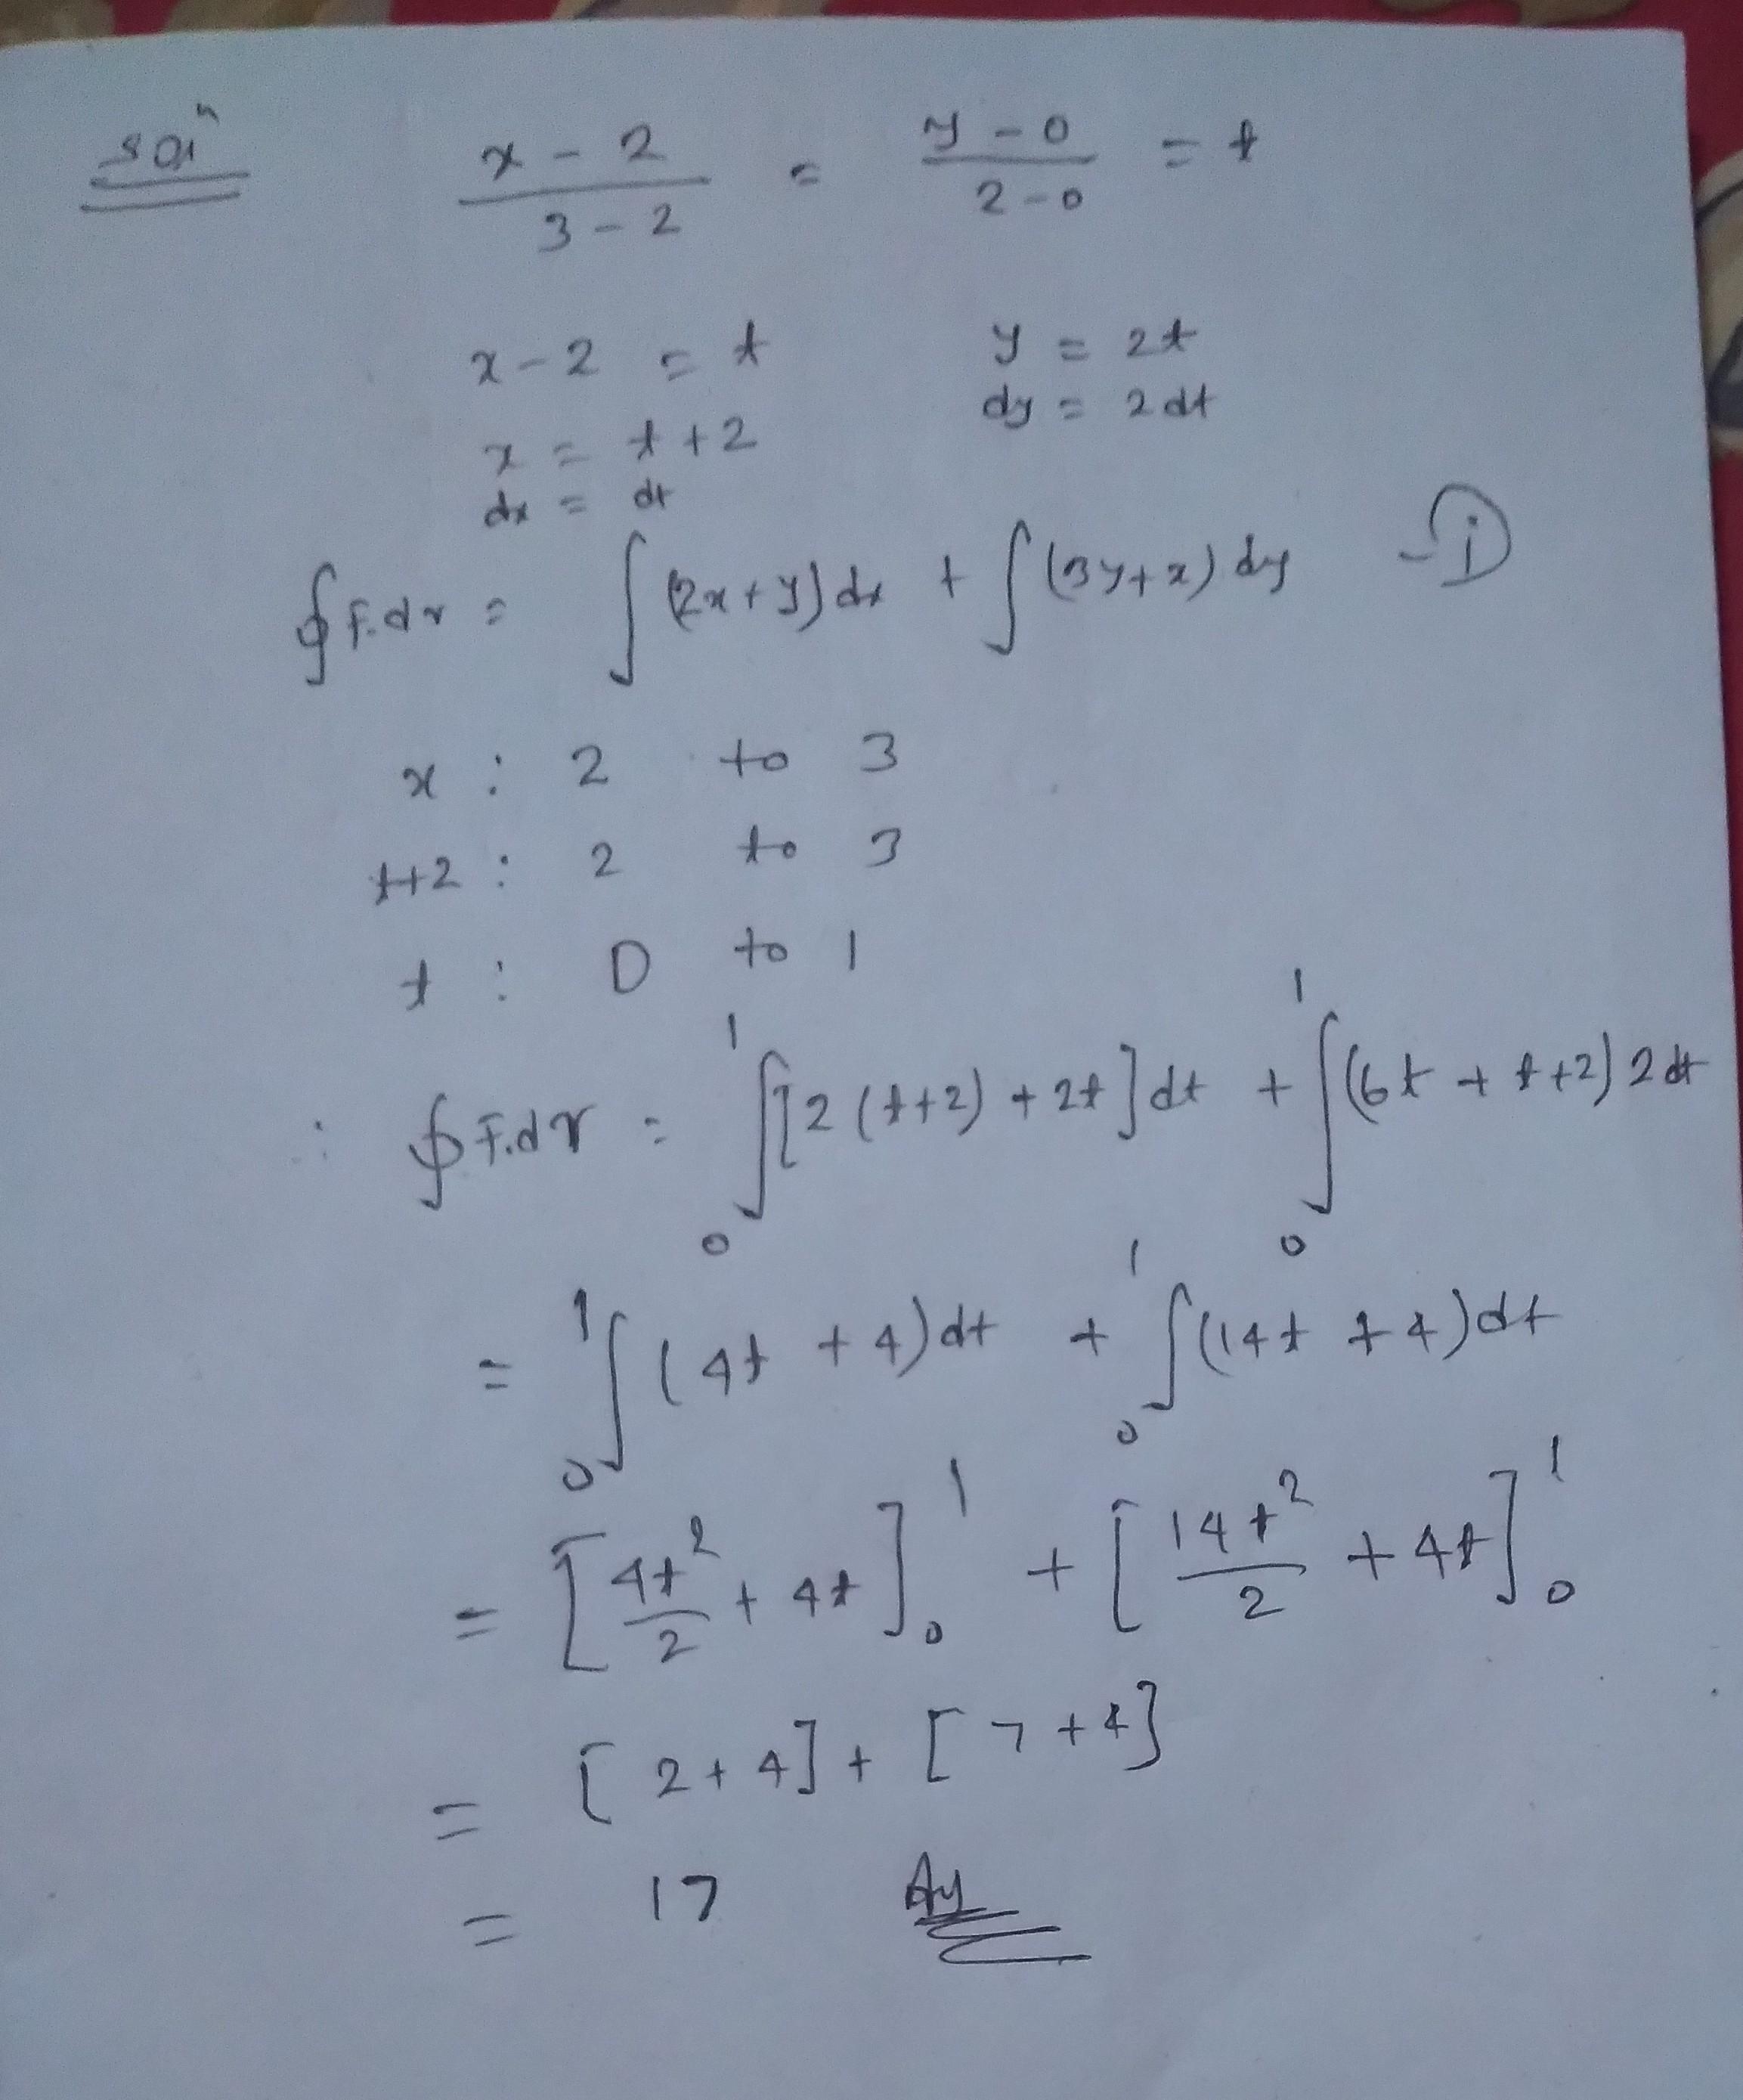 solⁿ (x - 2)/(3 - 2) = (y - 0)/(2 - 0) = t
x - 2 = t y = 2t
x = t + 2 dy = 2 dt
dx = dt
∮ F.dr = ∫ (2x + y) dx + ∫ (3y + x) dy - ⓘ
x : 2 to 3
t+2 : 2 to 3
t : 0 to 1
∴ ∮ F.dr = ∫₀¹ [2 (t+2) + 2t] dt + ∫₀¹ (6t + t + 2) 2 dt
= ∫₀¹ (4t + 4) dt + ∫₀¹ (14t + 4) dt
= [4t²/2 + 4t]₀¹ + [14t²/2 + 4t]₀¹
= [2 + 4] + [7 + 4]
= 17 Ay